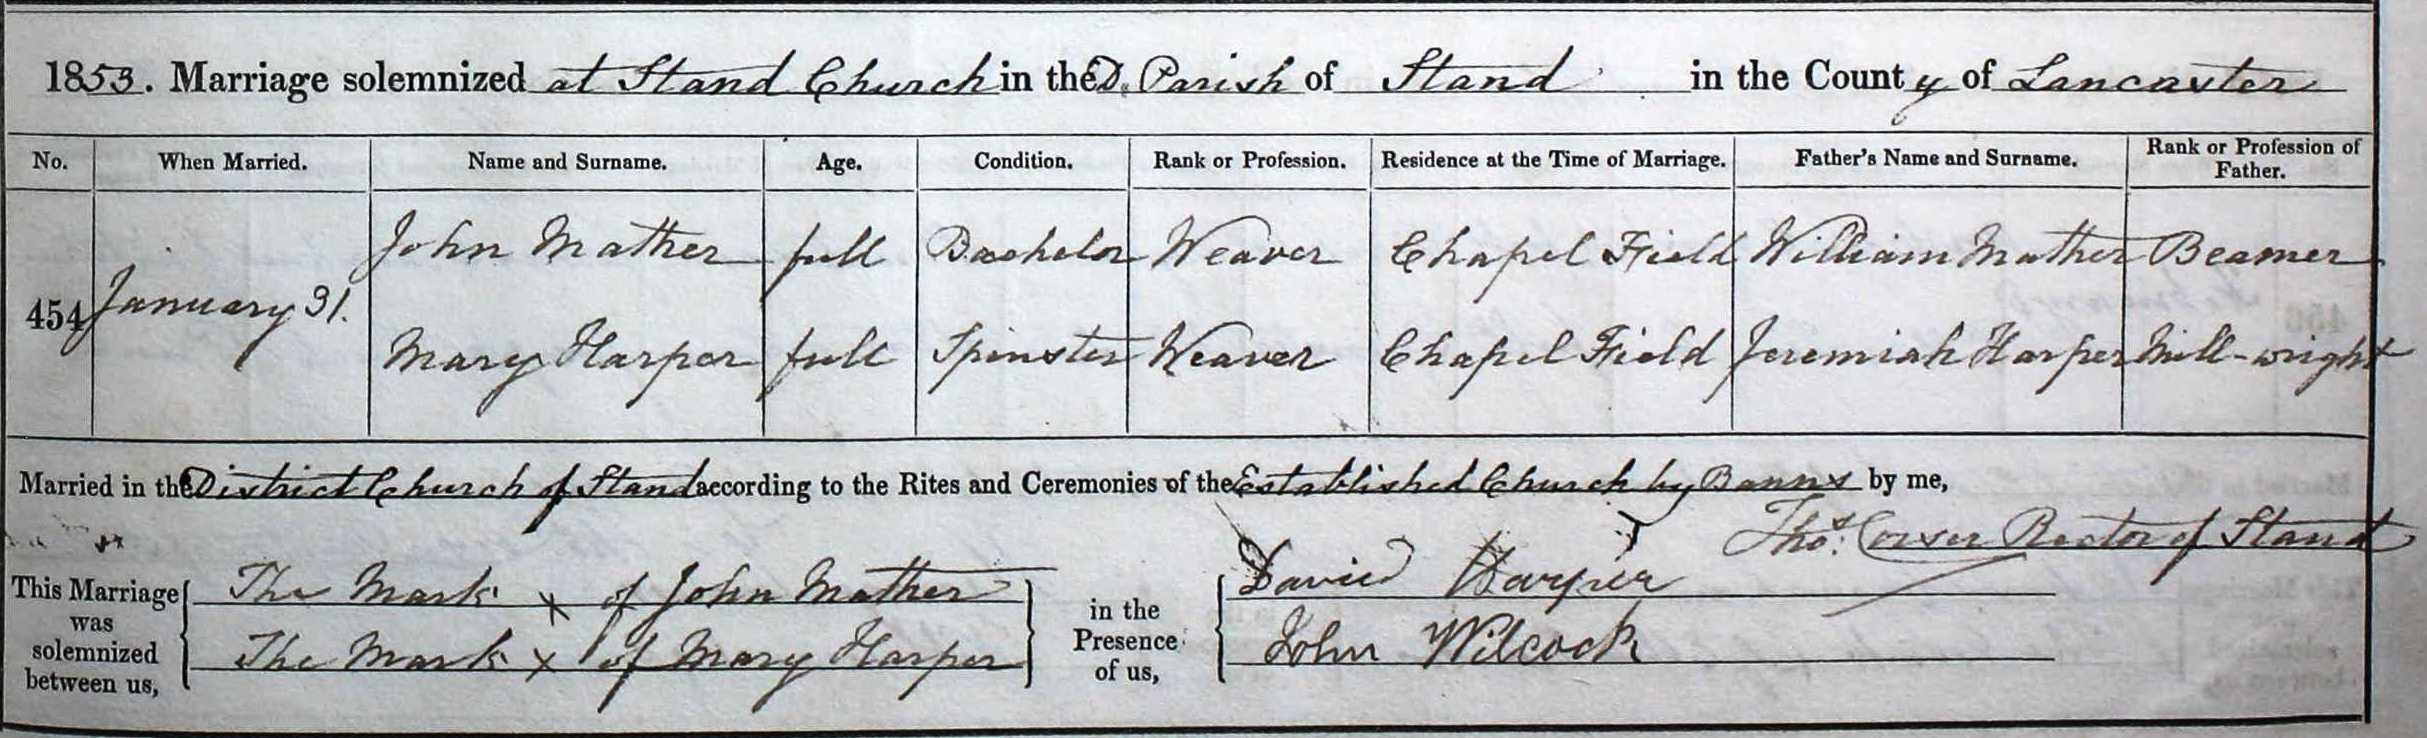 1853. Marriage solemnized at Stand Church in the D. Parish of Stand in the County of Lancaster
No. When Married. Name and Surname. Age. Condition. Rank or Profession. Residence at the Time of Marriage. Father's Name and Surname. Rank or Profession of Father.
John Mather full Bachelor Weaver Chapel Field William Mather Beamer
454 January 31.
Mary Harper full Spinster Weaver Chapel Field Jeremiah Harper Mill-wright
Married in the District Church of Stand according to the Rites and Ceremonies of the Established Church by Banns by me,
Thos. Corser Rector of Stand
This Marriage was solemnized between us,
The Mark x of John Mather
The Mark x of Mary Harper
in the Presence of us,
David Harper
John Wilcock